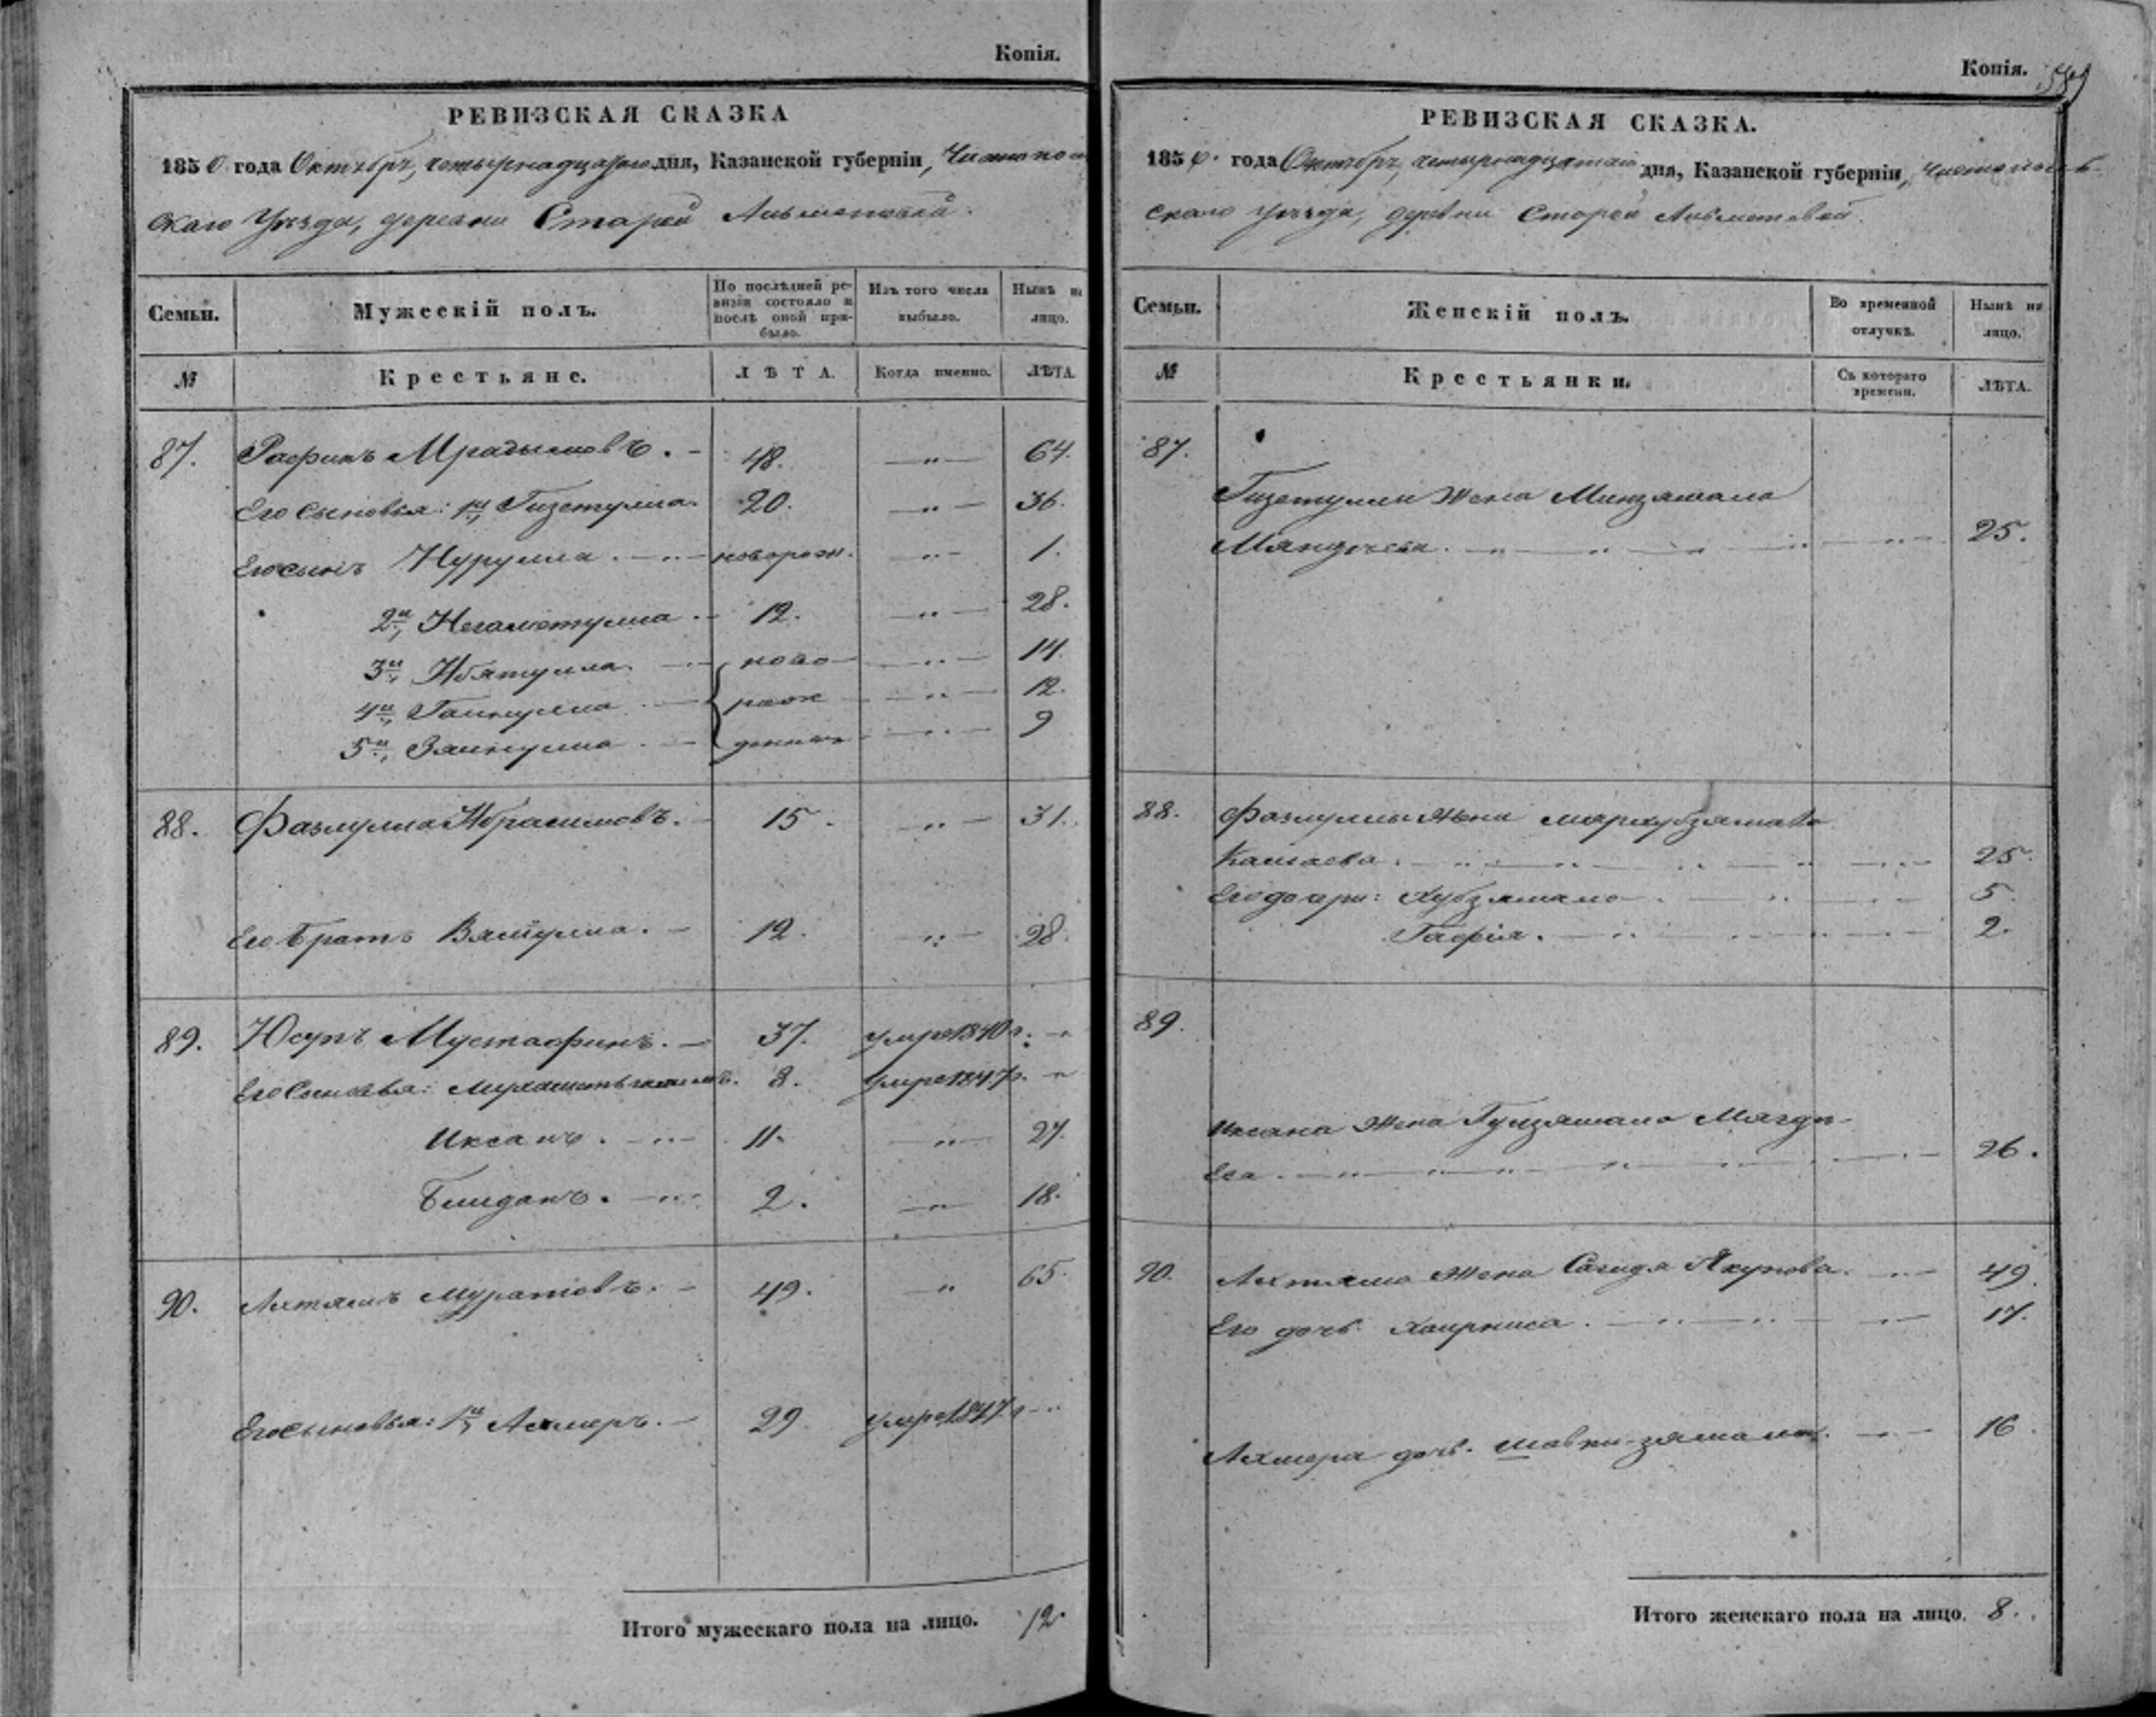 Копія.
РЕВИЗСКАЯ СКАЗКА
1850. года Октября, четырнадцатаго дня, Казанской губерніи, Чистополь
скаго Уѣзда, деревни Старой Альметевой.
Семьи. Мужескій полъ. По послѣдней ре- Изъ того числа Нынѣ на
визіи состояло и выбыло. лицо.
послѣ оной при-
было.
№ Крестьяне. ЛѢТА. Когда именно. ЛѢТА.
87. Рафикъ 48. — „ — 64.
Его сыновья: 1й, Гизетулла. 20. — „ — 36.
Его сынъ Нурулла. — „ — новорож. — „ — 1.
2й, Негаметулла. — 12. — „ — 28.
3й, Ибятулла. — ново — „ — 14.
4й, Гайнулла. — рож — „ — 12.
5й, Зайнулла. — денные — „ — 9
88. Фазлулла Ибрагимовъ. — 15. — „ — 31.
Его братъ Вялиулла. — 12. — „ — 28.
89. Юсупъ Мустафинъ. — 37. умре 1840 г. — „
Его сыновья: 8. умре 1847 г. — „
Иксанъ. — „ — 11. — „ — 27.
2. — „ — 18.
90. Ахтямъ Муратовъ. — 49. „ 65.
Его сыновья: 1й, Ахмеръ. — 29. умре 1847 г. — „
Итого мужескаго пола на лицо. 12.
Копія. 589
РЕВИЗСКАЯ СКАЗКА.
1850. года Октября, четырнадцатаго дня, Казанской губерніи, Чистополь-
скаго уѣзда, деревни Старой Альметевой.
Семьи. Женскій полъ. Во временной Нынѣ на
отлучкѣ. лицо.
№ Крестьянки. Съ котораго ЛѢТА.
времени.
87.
Гизетуллы жена Минзямала
— „ — „ — „ — „ — „ — 25.
88. Фазлуллы жена
Камаева. — „ — „ — „ — „ — „ — 25.
Его дочери: Хубзямала — . — „ — „ — 5.
Гафія. — „ — „ — „ — 2.
89.
Иксана жена Гулзямала Мягдѣ-
ева. — „ — „ — „ — „ — „ — 26.
90. Ахтяма жена Сагида Якупова. — „ — 49.
Его дочь Хаирниса. — „ — „ — „ — 17.
Ахмера дочь. — „ — 16.
Итого женскаго пола на лицо. 8.